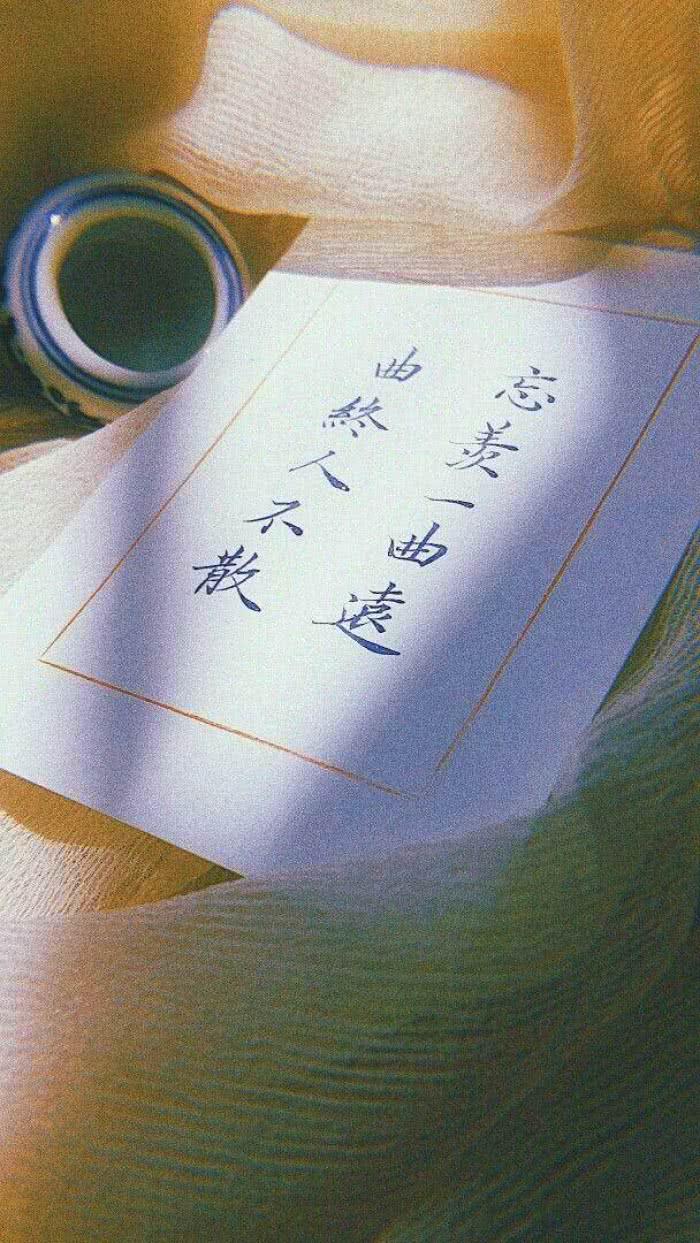 忘羨一曲遠
曲終人不散